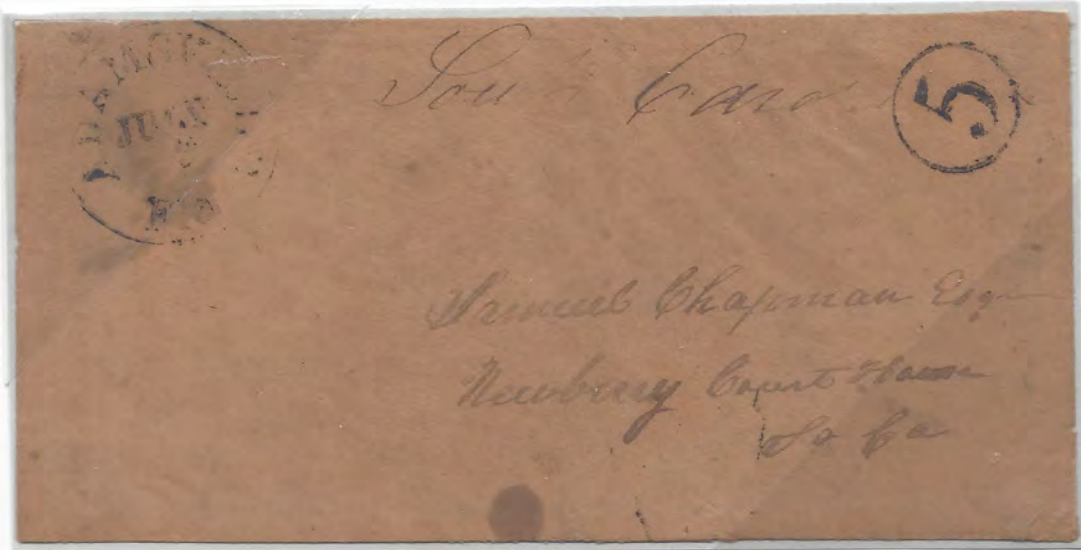 South Caro
5
JULY
Samuel Chapman Esqr
Newberry Court House
So Ca